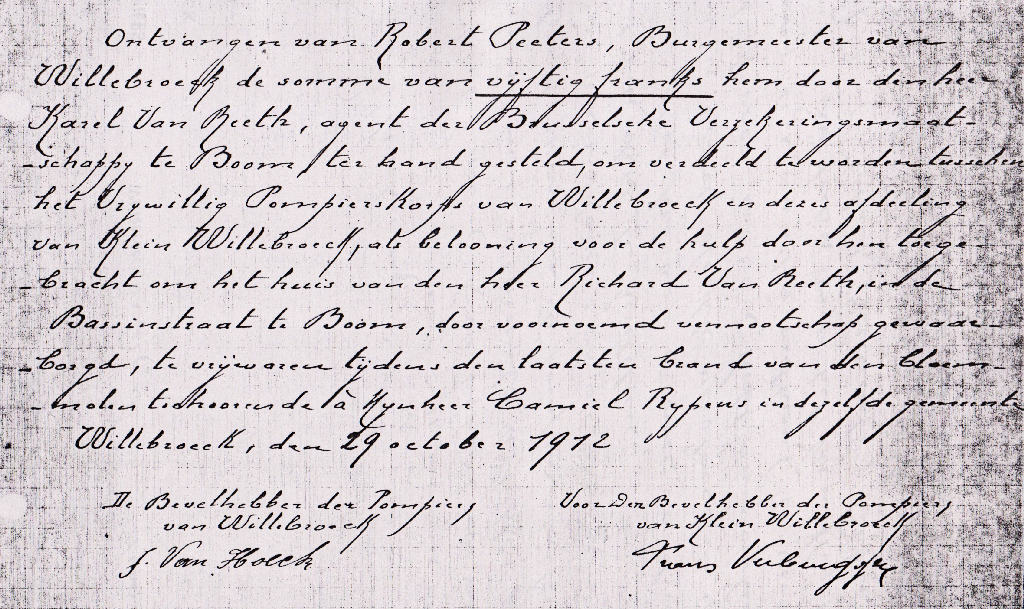 Ontvangen van Robert Peeters, Burgemeester van
Willebroeck de somme van vijftig franks hem door den heer
Karel Van Reeth, agent der Brusselsche Verzekeringsmaat-
-schappy te Boom, ter hand gesteld, om verdeeld te worden tusschen
het Vrywillig Pompierskorps van Willebroeck en deres afdeeling
van Klein Willebroeck, als belooning voor de hulp door hen toege-
-bracht om het huis van den heer Richard Van Reeth, in de
Bassinstraat te Boom, door voornoemd vennootschap gewaar-
-borgd, te vrijwaren tijdens den laatsten brand van den bloem-
-molen toehoorende à Mynheer Camiel Rypens in dezelfde gemeente
Willebroeck, den 29 october 1912
De Bevelhebber der Pompiers
van Willebroeck
J. Van Hoeck
Voor Den Bevelhebber der Pompiers
van Klein Willebroeck
Frans